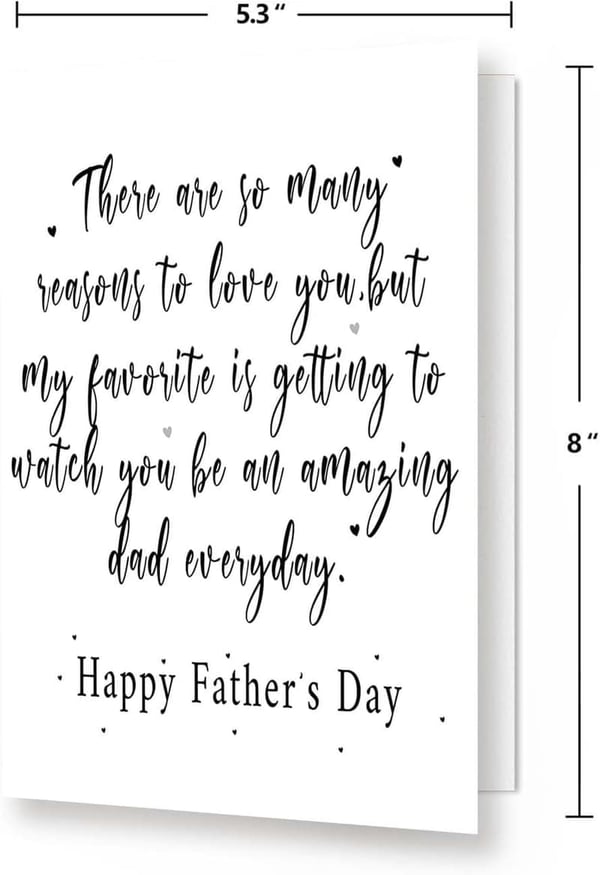 5.3 "
There are so many
reasons to love you,but
my favorite is getting to
watch you be an amazing
dad everyday.
Happy Father's Day
8 "